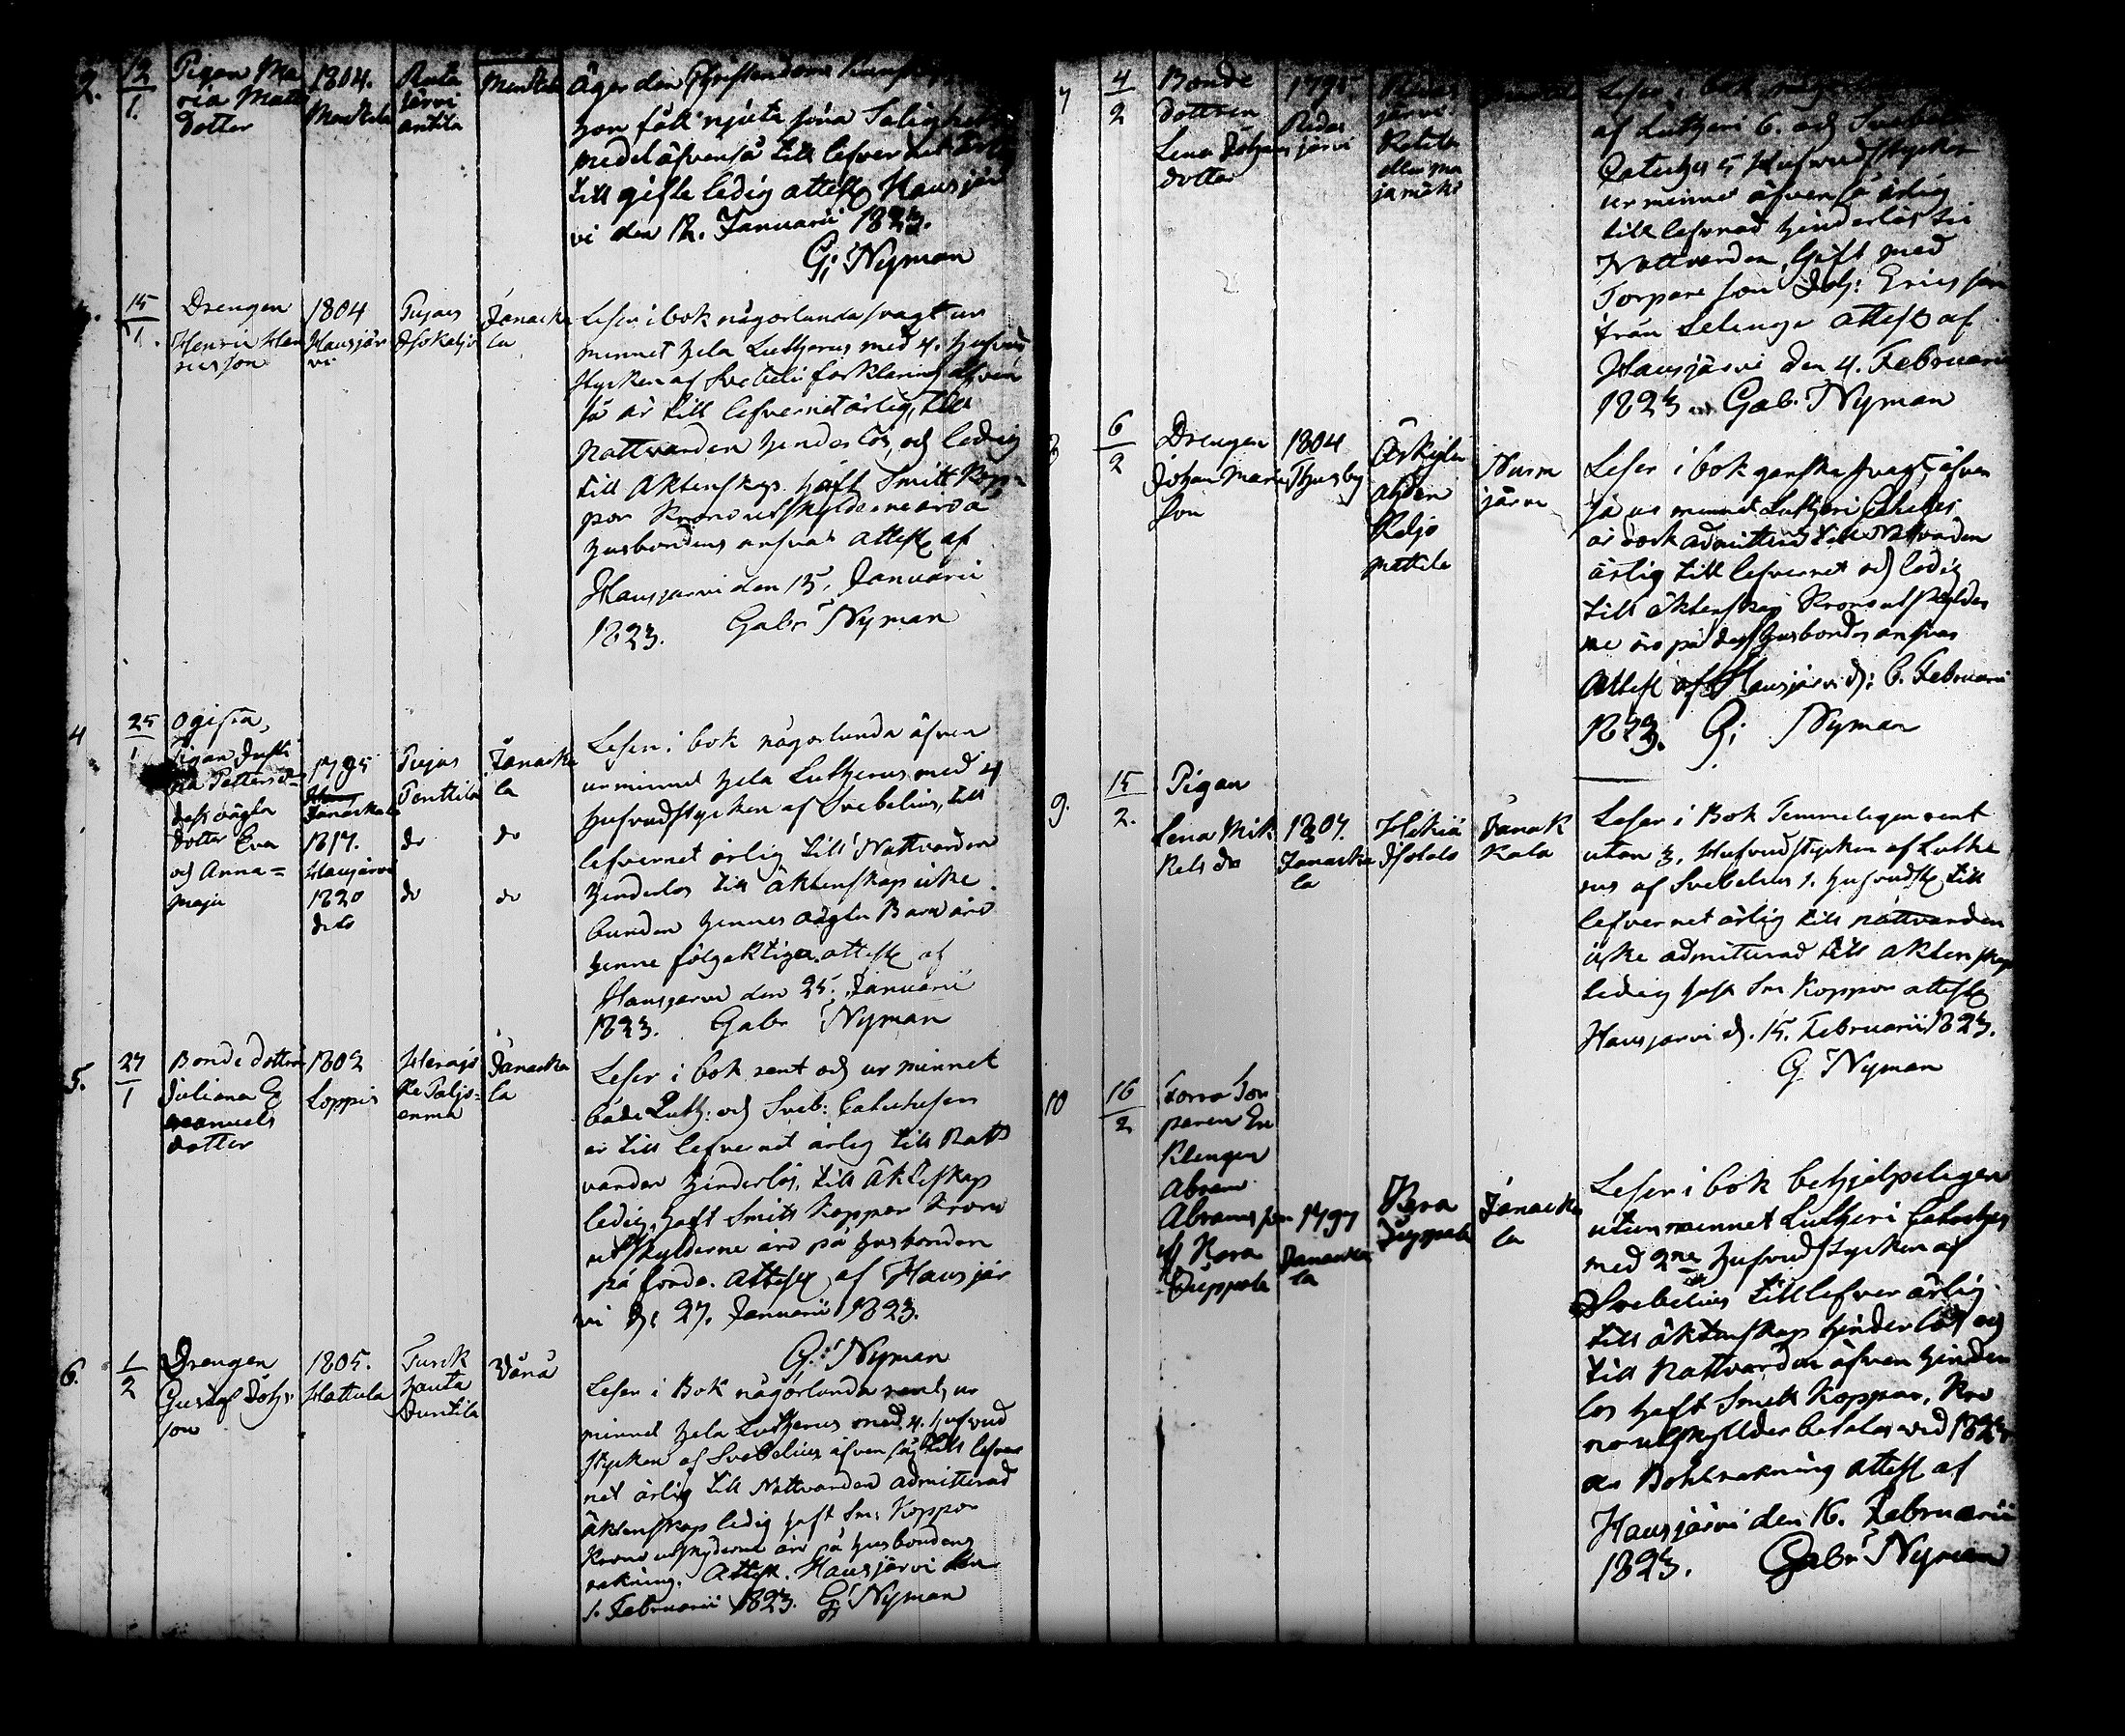 2.
12
1.
Pigan Ma
ria Matts
dotter
1804.
Ruta
järvi
antila
äger den Christendoms
hon fått njuta sina Salighets
medel äfvenså till lefvernet ärlig
till gifte ledig attest Hausjär
vi den 12. Januarii 1823.
G: Nyman
15
1.
Drengen
Henric Hen
ricsson
1804
Hausjär
vi
Janacka
la
Leser i bok någorlunda svagt ur
minnet hela Lutherus med 4. hufvud
stycken af Svebelii förklaring äfven
så är till lefvernet ärlig, till
Nattvarden hinderlös, och ledig
till äktenskap haft Smitt Kop-
por Krono utskylderne äro å
husbondens ansvar attest af
Hausjarvi den 15. Januarii
1823. Gabr Nyman
4
25
1
Ogifta,
Pigan Justi
na Petters d=
dess oägta
dotter Eva
och Anna=
Maja
1795
Janackala
1817.
Hausjärvi
1820
dito
Pujas
Penttila
do
do
Janacka
la
do
do
Leser i bok någorlunda äfven
ur minnet hela Lutherus med 4
hufvudstycken af Svebelius, till
lefvernet ärlig till Nattvarden
hinderlös till äktenskap icke
bunden hennes oägta Barn äro
henne följaktiga attest af
Hausjarvi den 25. Januarii
1823. Gabr Nyman
5.
27
1
Bonde dottren
Juliana E
manuels
dotter
1802
Loppis
Janacka
la
Leser i bok rent och ur minnet
både Luth: och Sveb: Catechesen
är till lefvernet ärlig till Natt
varden hinderlös, till äkteskap
ledig, haft Smitt Koppor Krono
utskylderne äro på husbonden
på förda. Attest af Hausjär
vi d: 27. Januarii 1823.
G: Nyman
6.
1
2
Drengen
Gustaf Joh:
son
1805.
Hattula
Turck
hauta
Vånå
Leser i Bok någorlunda rent, ur
minnet hela Lutherus med 4. hufvud
stycken af Svebelius äfven så till lefver
net ärlig till Nattvarden admitterad
äktenskap ledig haft Sm: Koppor
Krono utskyderne äro på husbondens
räkning. Attest. Hausjärvi den
1. Februarii 1823. G: Nyman
7
4
2
Bonde
dottren
Lena Johans
dotter
1795.
Ridas
järvi
Ridas
järvi
Leser i bok någorlunda
af Lutheri 6. och Svebelii
Cateches 5 Hufvudstycken
ur minne äfven så ärlig
till lefvnad hinderlös till
Nattvarden, Gift med
Torpare son Joh: Ericsson
från attest af
Hausjärvi den 4. Februarii
1823 Gab. Nyman
8
6
2
Drengen
Johan Mari
son
1804
Thusby
Keljo
Mattila
Nurm
järvi
Leser i bok ganska svagt, äfven
så ur minnet Lutheri Cateches
är dock admitterad till Nattvarden
ärlig till lefvernet och ledig
till äktenskap Krono utskylder
ne äro på dess husbondes ansvar
Attest af Hausjärvi d: 6. Februarii
1823. G: Nyman
9.
15
2.
Pigan
Lena Mik
kels dr
1807.
Janacka
la
Hikiä
Janak
kala
Leser i Bok Temmeligen rent
utan 3. Hufvudstycken af Luthe
rus af Svebelius 1. hufvudst till
lefvernet ärlig till nattvarden
icke admitterad till äktenskap
ledig haft Sm Koppor attest
Hausjarvi d. 15. Februarii 1823.
G Nyman
10
16
2
Förra Tor
paren En
klengen
Abram
Abramsson
Kara
1797
Janacka
la
Kara
Janacka
la
Leser i bok behjelpeligen
utur minnet Lutheri Cateches
med 2ne hufvudstycken af
Svebelius till lefver ärlig
till äktenskap hinderlös och
till Nattvarden äfven hinder
lös haft Smitt Koppor, Kro
no utskyllder betalas ved 1824
års Bohl räkning attest af
Hausjärvi den 16. Februarii
1823. Gabr Nyman